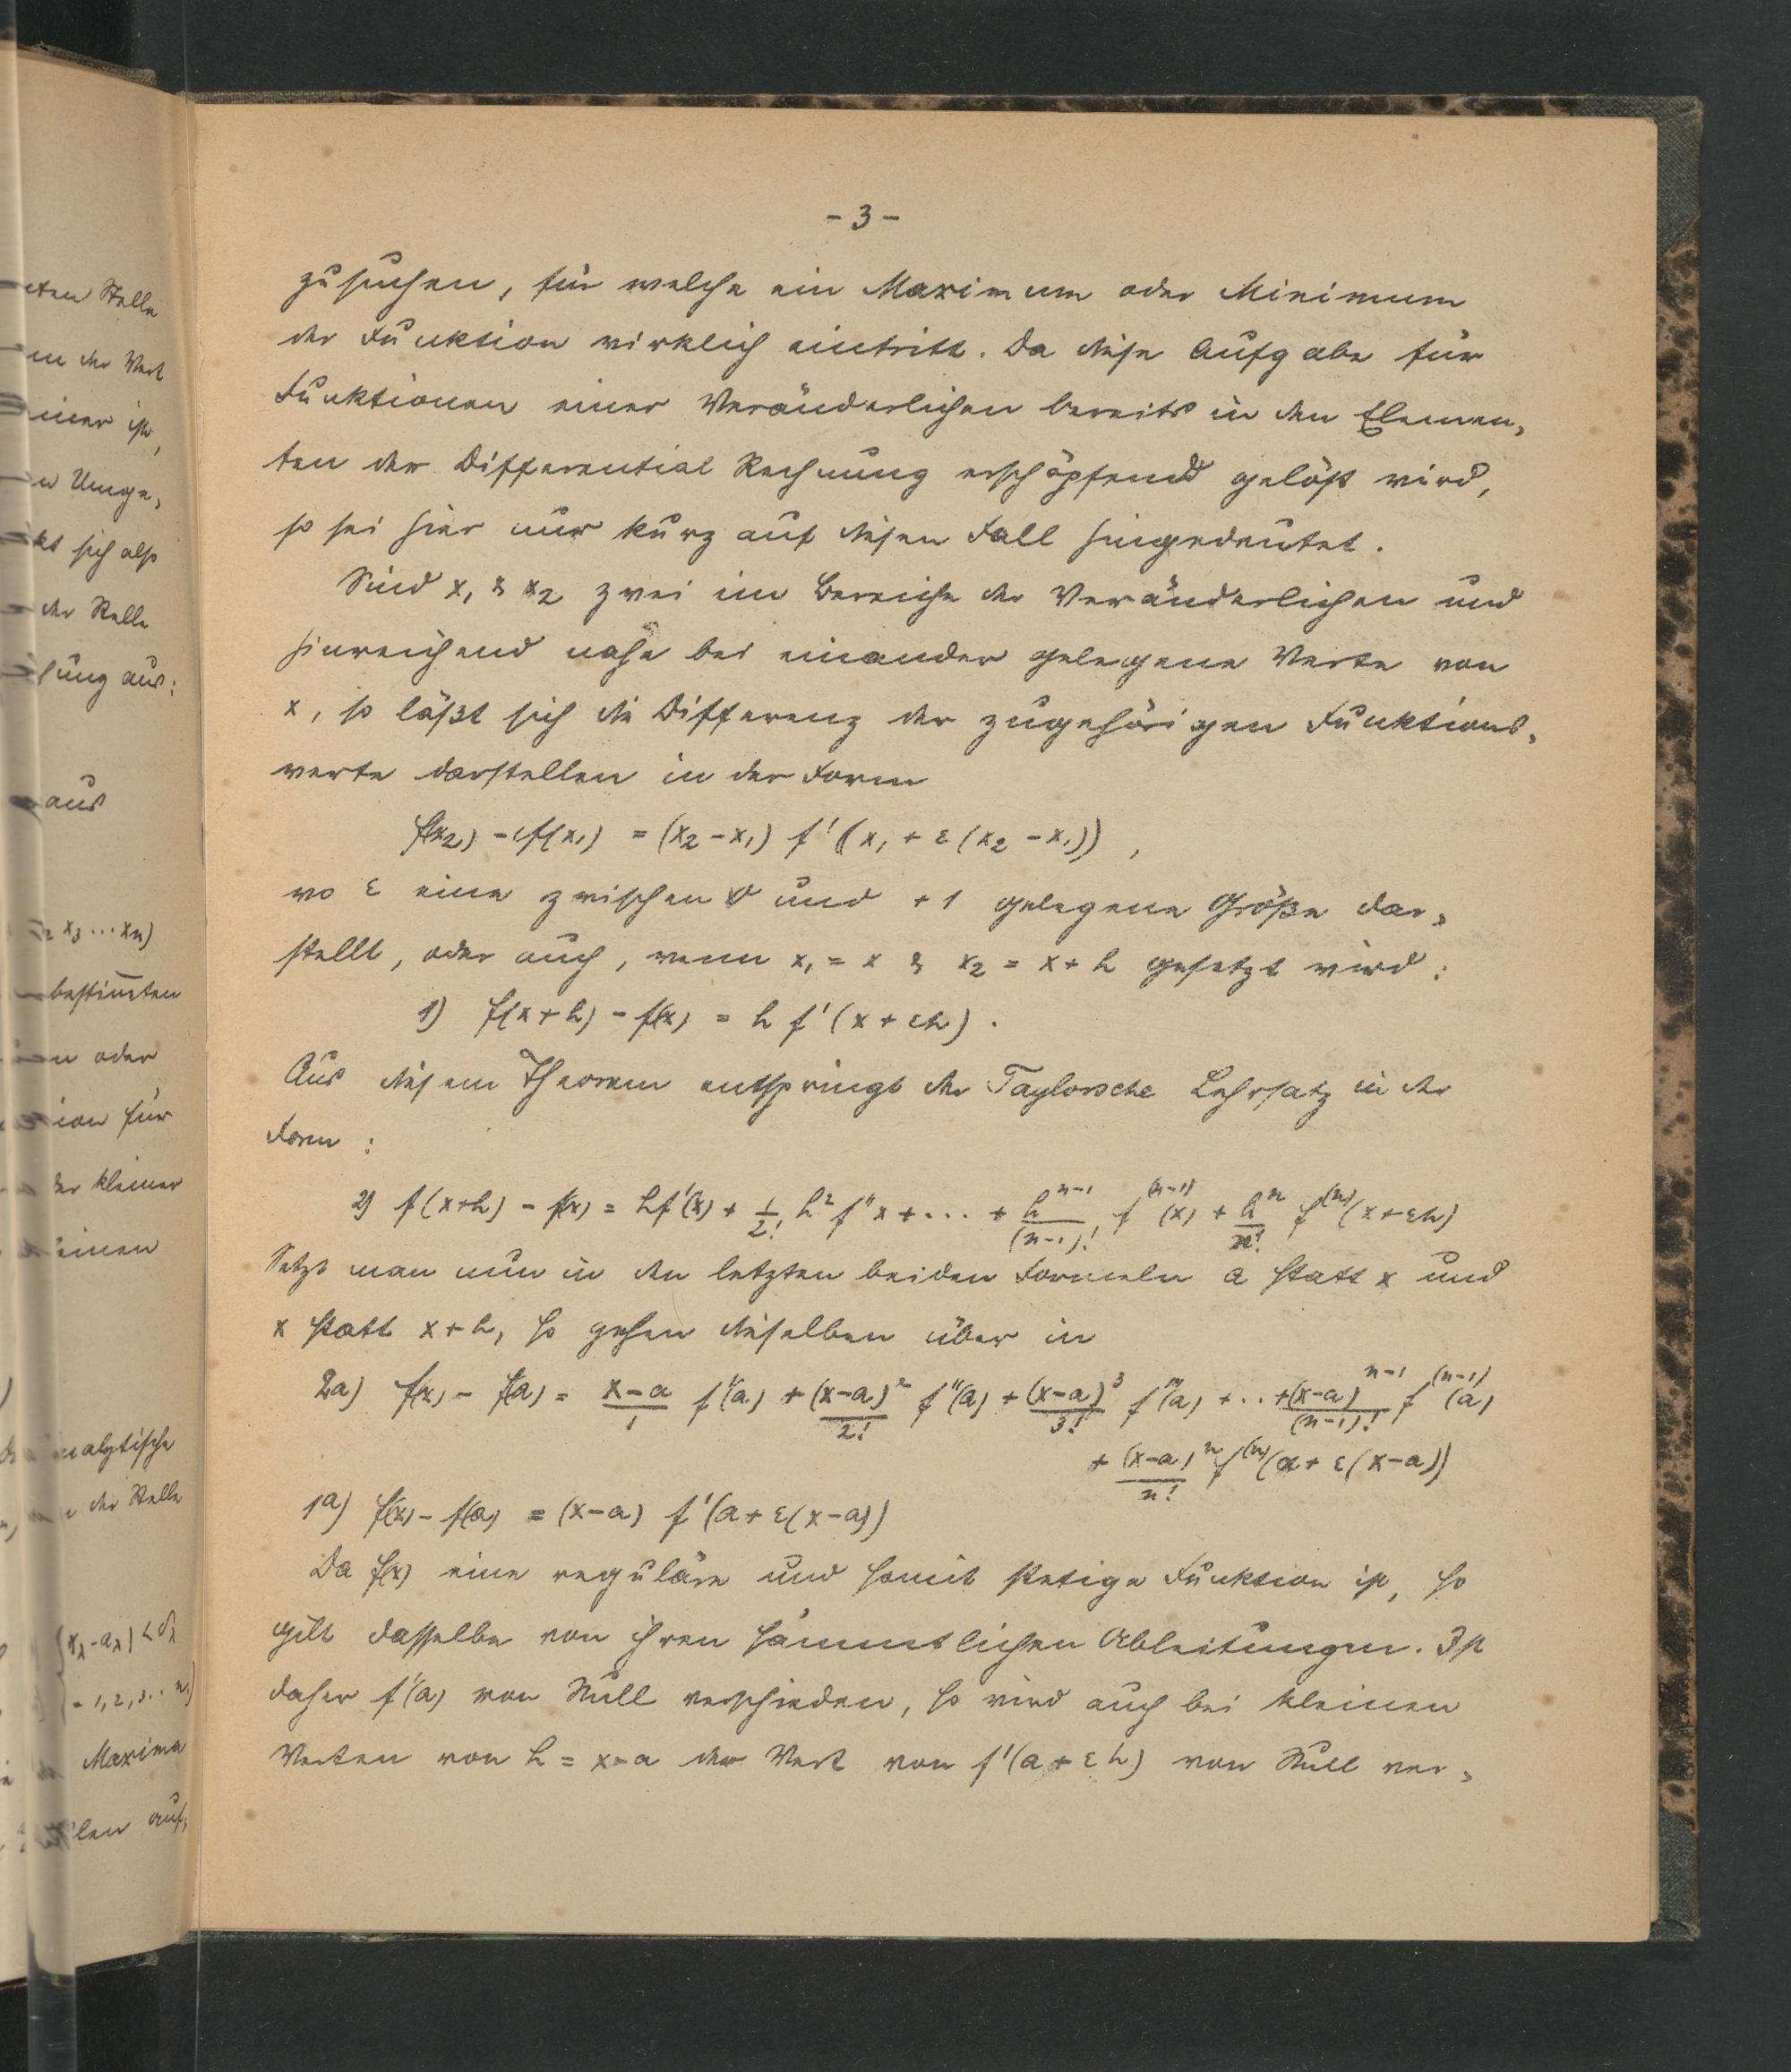 - 3 -
zusuchen, für welche ein Maximum oder Minimum
der Funktion wirklich eintritt. Da diese Aufgabe für
Funktionen einer Veränderlichen bereits in den Elemen-
ten der Differential Rechnung erschöpfend gelöst wird,
so sei hier nur kurz auf diesen Fall hingedeutet.
Sind x₁ & x₂ zwei im Bereiche der Veränderlichen und
hinreichend nahe bei einander gelegene Werte von
x, so läßt sich die Differenz der zugehörigen Funktions-
werte darstellen in der Form
f(x₂) - f(x₁) = (x₂ - x₁) f'(x₁ + ε(x₂ - x₁)) ,
wo ε eine zwischen 0 und +1 gelegene Größe dar-
stellt, oder auch, wenn x₁ = x & x₂ = x + h gesetzt wird:
1) f(x+h) - f(x) = h f'(x + εh) .
Aus diesem Theorem entspringt der Taylorsche Lehrsatz in der
Form :
2) f(x+h) - f(x) = hf'(x) + 1/2! h² f''x + ... + h^(n-1)/(n-1)! f^(n-1)(x) + h^n/n! f^(n)(x+εh)
Setzt man nun in den letzten beiden Formeln a statt x und
x statt x+h, so gehen dieselben über in
2a) f(x) - f(a) = (x-a)/1 f'(a) + (x-a)²/2! f''(a) + (x-a)³/3! f'''(a) + ... + (x-a)^(n-1)/(n-1)! f^(n-1)(a)
+ (x-a)^n/n! f^(n)(a + ε(x-a))
1a) f(x) - f(a) = (x-a) f'(a + ε(x-a))
Da f(x) eine reguläre und somit stetige Funktion ist, so
gilt dasselbe von ihren sämmtlichen Ableitungen. Ist
daher f'(a) von Null verschieden, so wird auch bei kleinen
Werten von h = x-a der Wert von f'(a + εh) von Null ver-